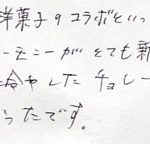 洋菓子のコラボといっ
ーモニーがとても新
冷やしたチョレー
ったです。